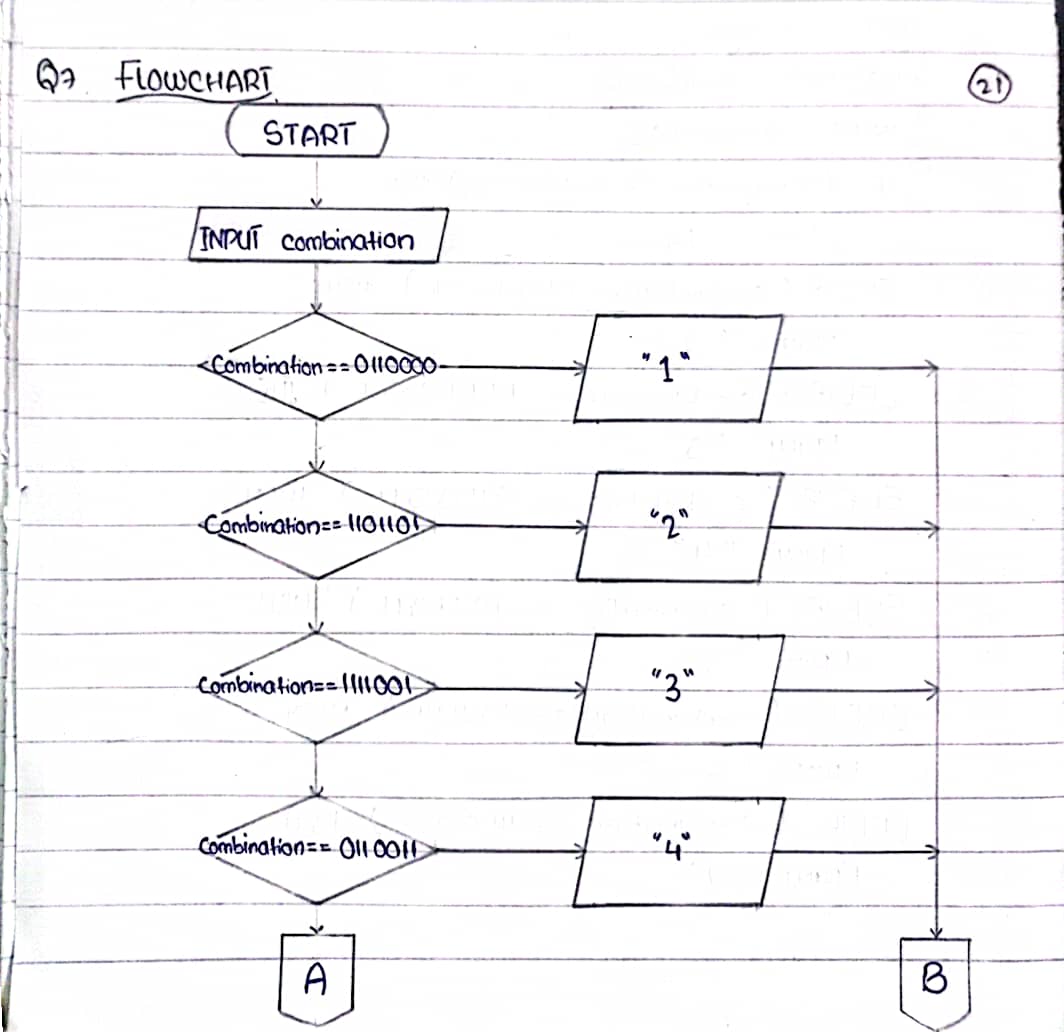 Q7. FLOWCHART
21
START
INPUT combination
Combination == 0110000
"1"
Combination == 1101101
"2"
Combination == 1111001
"3"
Combination == 0110011
"4"
A
B